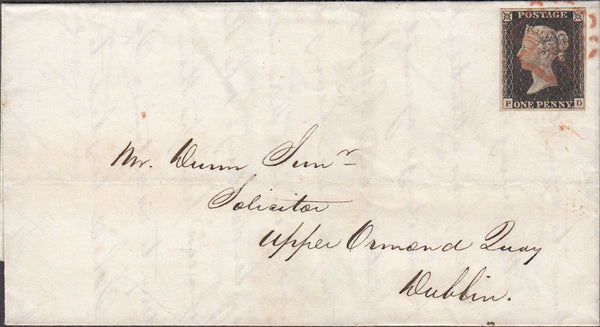 POSTAGE
P D
ONE PENNY
Mr. Dunn Senr
Solicitor
Upper Ormond Quay
Dublin.